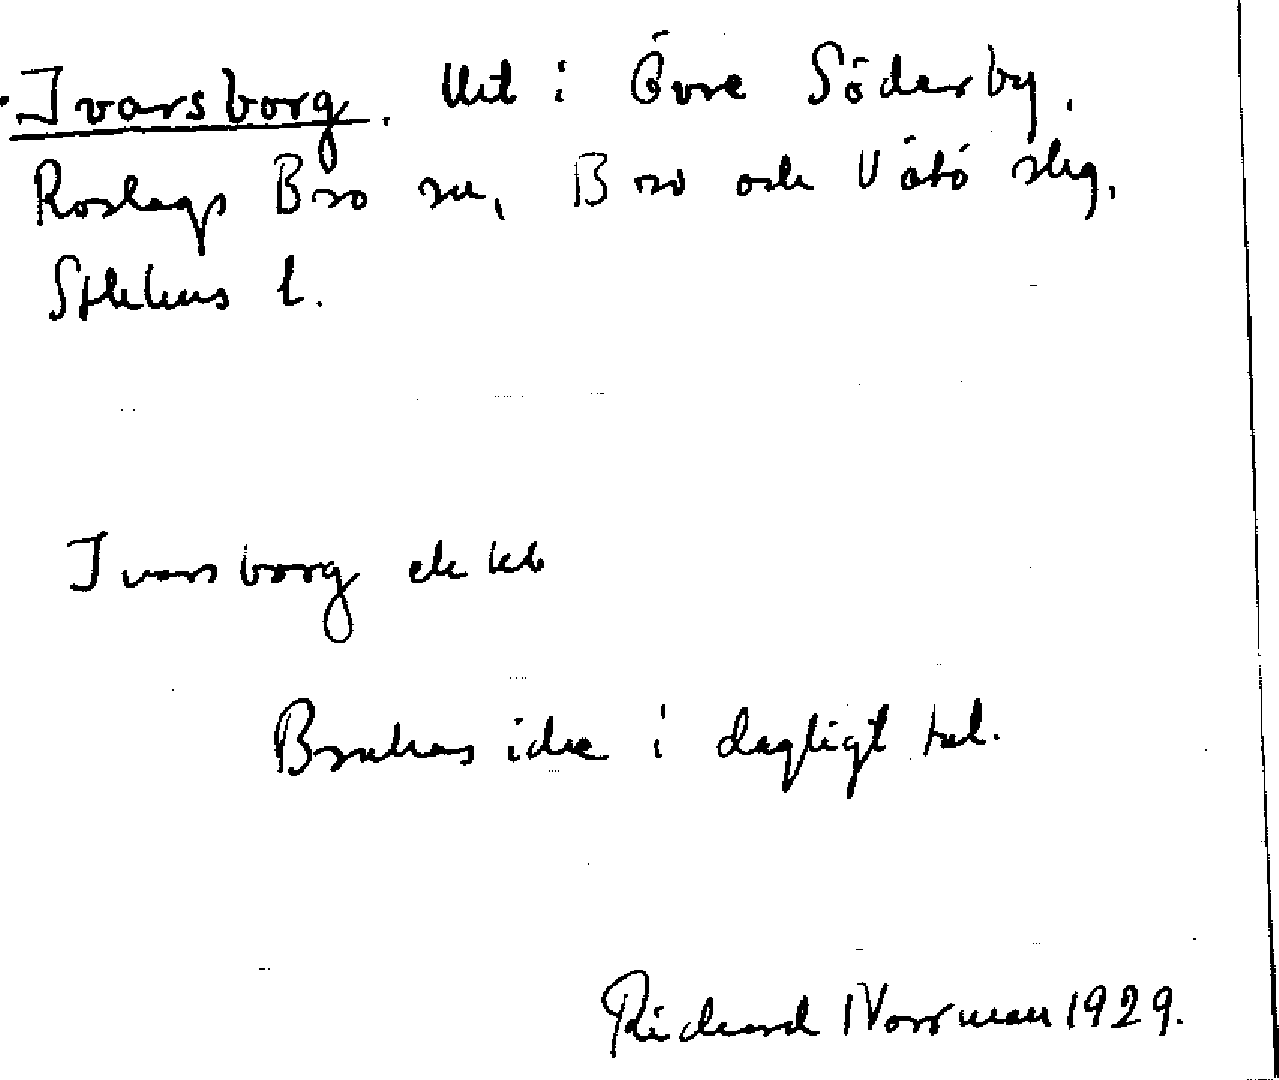 Ivarsborg. Utt i Övre Söderby,
Roslags Bro sn, Bro och Vätö slg,
Sthlms l.
Ivarsborg ek kb
i dagligt tal.
Richard Norrman 1929.